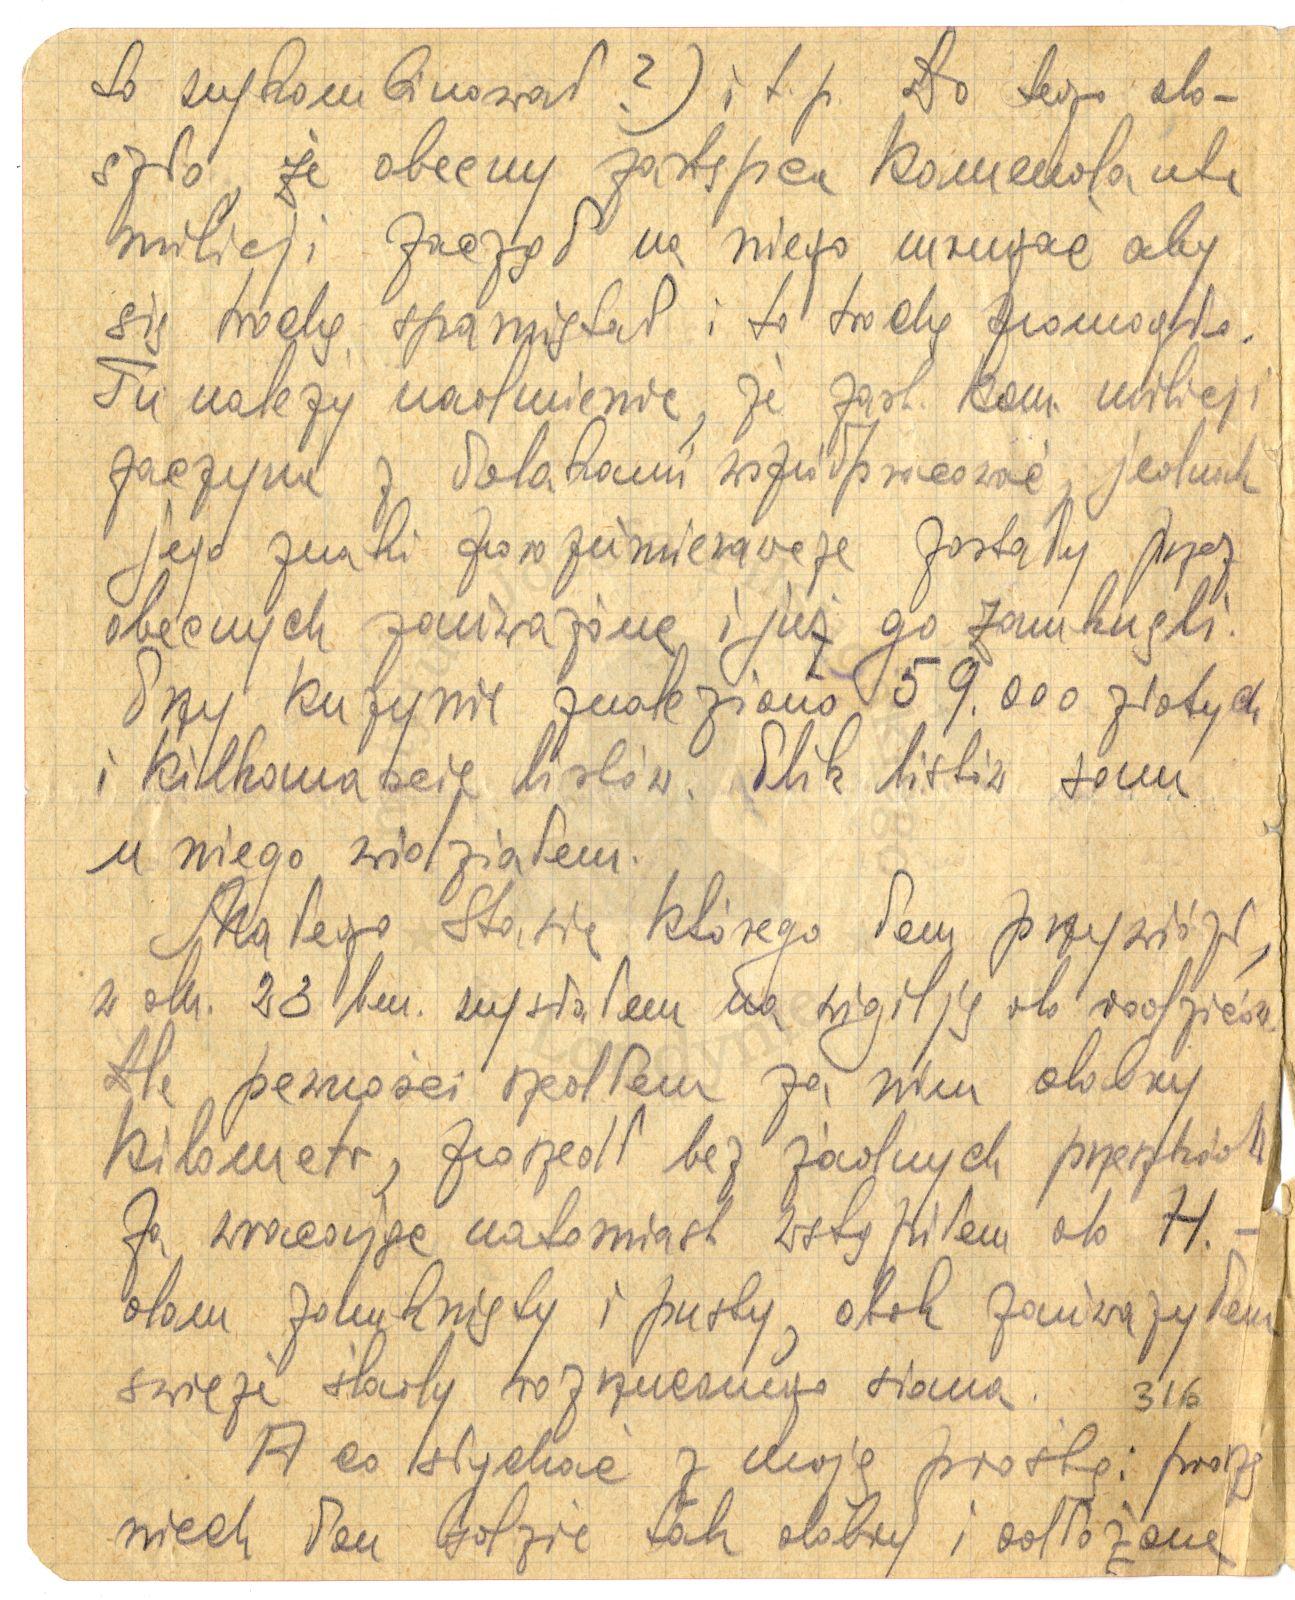 to wykombinował?) i t.p. Do tego do-
szło, że obecny zastępca komendanta
milicji zaczął na niego mrugać aby
się trochę spamiętał i to trochę pomogło.
Tu należy nadmienić, że zast. kom. milicji
zaczyna z Polakami współpracować, jednak
jego znaki porozumiewawcze zostały przez
obecnych zauważone i już go zamknęli.
Przy kuzynie znaleziono 59.000 złotych
i kilkanaście listów. Plik listów sam
u niego widziałem.
Małego Stasię którego Pan przywiózł,
w dn. 23 bm. wysłałem na wigilję do rodziców.
Dla pewności szedłem za nim dobry
kilometr, poszedł bez żadnych przeszkód
Ja wracając natomiast wstąpiłem do H. –
dom zamknięty i pusty, obok zauważyłem
świeże ślady rozrzuconego siana. 316
A co słychać z moją prośbą: proszę
niech Pan będzie tak dobry i odłożone